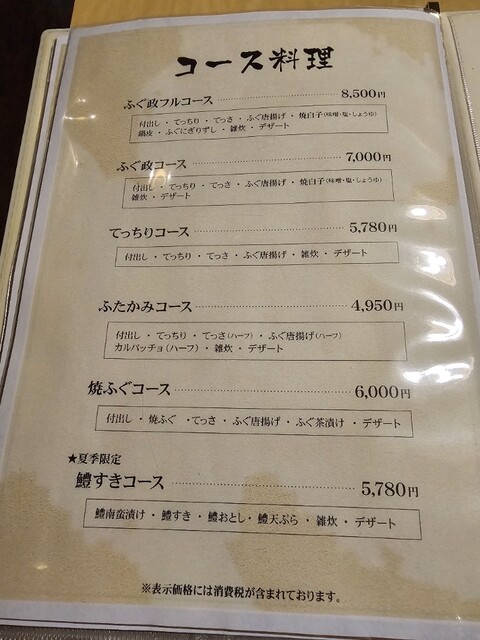 コース料理
ふぐ政フルコース 8,500円
付出し・てっちり・てっさ・ふぐ唐揚げ・焼白子(味噌・塩・しょうゆ)
鍋皮・ふぐにぎりずし・雑炊・デザート
ふぐ政コース 7,000円
付出し・てっちり・てっさ・ふぐ唐揚げ・焼白子(味噌・塩・しょうゆ)
雑炊・デザート
てっちりコース 5,780円
付出し・てっちり・てっさ・ふぐ唐揚げ・雑炊・デザート
ふたかみコース 4,950円
付出し・てっちり・てっさ(ハーフ)・ふぐ唐揚げ(ハーフ)
カルパッチョ(ハーフ)・雑炊・デザート
焼ふぐコース 6,000円
付出し・焼ふぐ・てっさ・ふぐ唐揚げ・ふぐ茶漬け・デザート
★夏季限定
鱧すきコース 5,780円
鱧南蛮漬け・鱧すき・鱧おとし・鱧天ぷら・雑炊・デザート
※表示価格には消費税が含まれております。